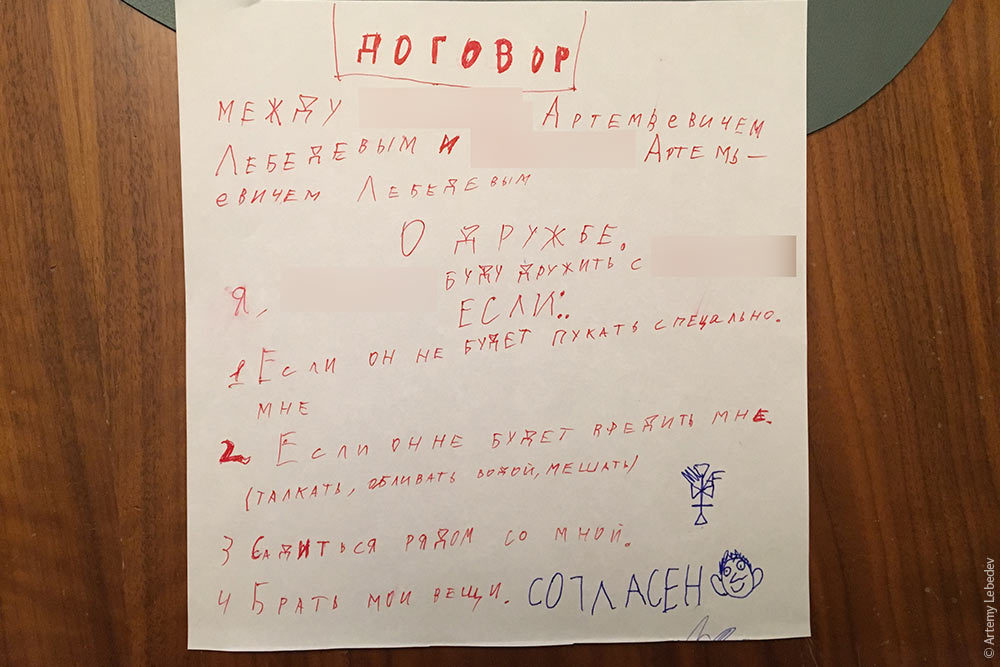 ДОГОВОР
МЕЖДУ АРТЕМЬЕВИЧЕМ
ЛЕБЕДЕВЫМ И АРТЕМЬ-
ЕВИЧЕМ ЛЕБЕДЕВЫМ
О ДРУЖБЕ.
Я, БУДУ ДРУЖИТЬ С
ЕСЛИ:
1 ЕСЛИ ОН НЕ БУДЕТ ПУКАТЬ СПЕЦАЛЬНО.
МНЕ
2 ЕСЛИ ОН НЕ БУДЕТ ВРЕДИТЬ МНЕ.
(ТАЛКАТЬ, ОБЛИВАТЬ ВОДОЙ, МЕШАТЬ)
3 САДИТЬСЯ РЯДОМ СО МНОЙ.
4 БРАТЬ МОИ ВЕЩИ. СОГЛАСЕН
© Artemy Lebedev